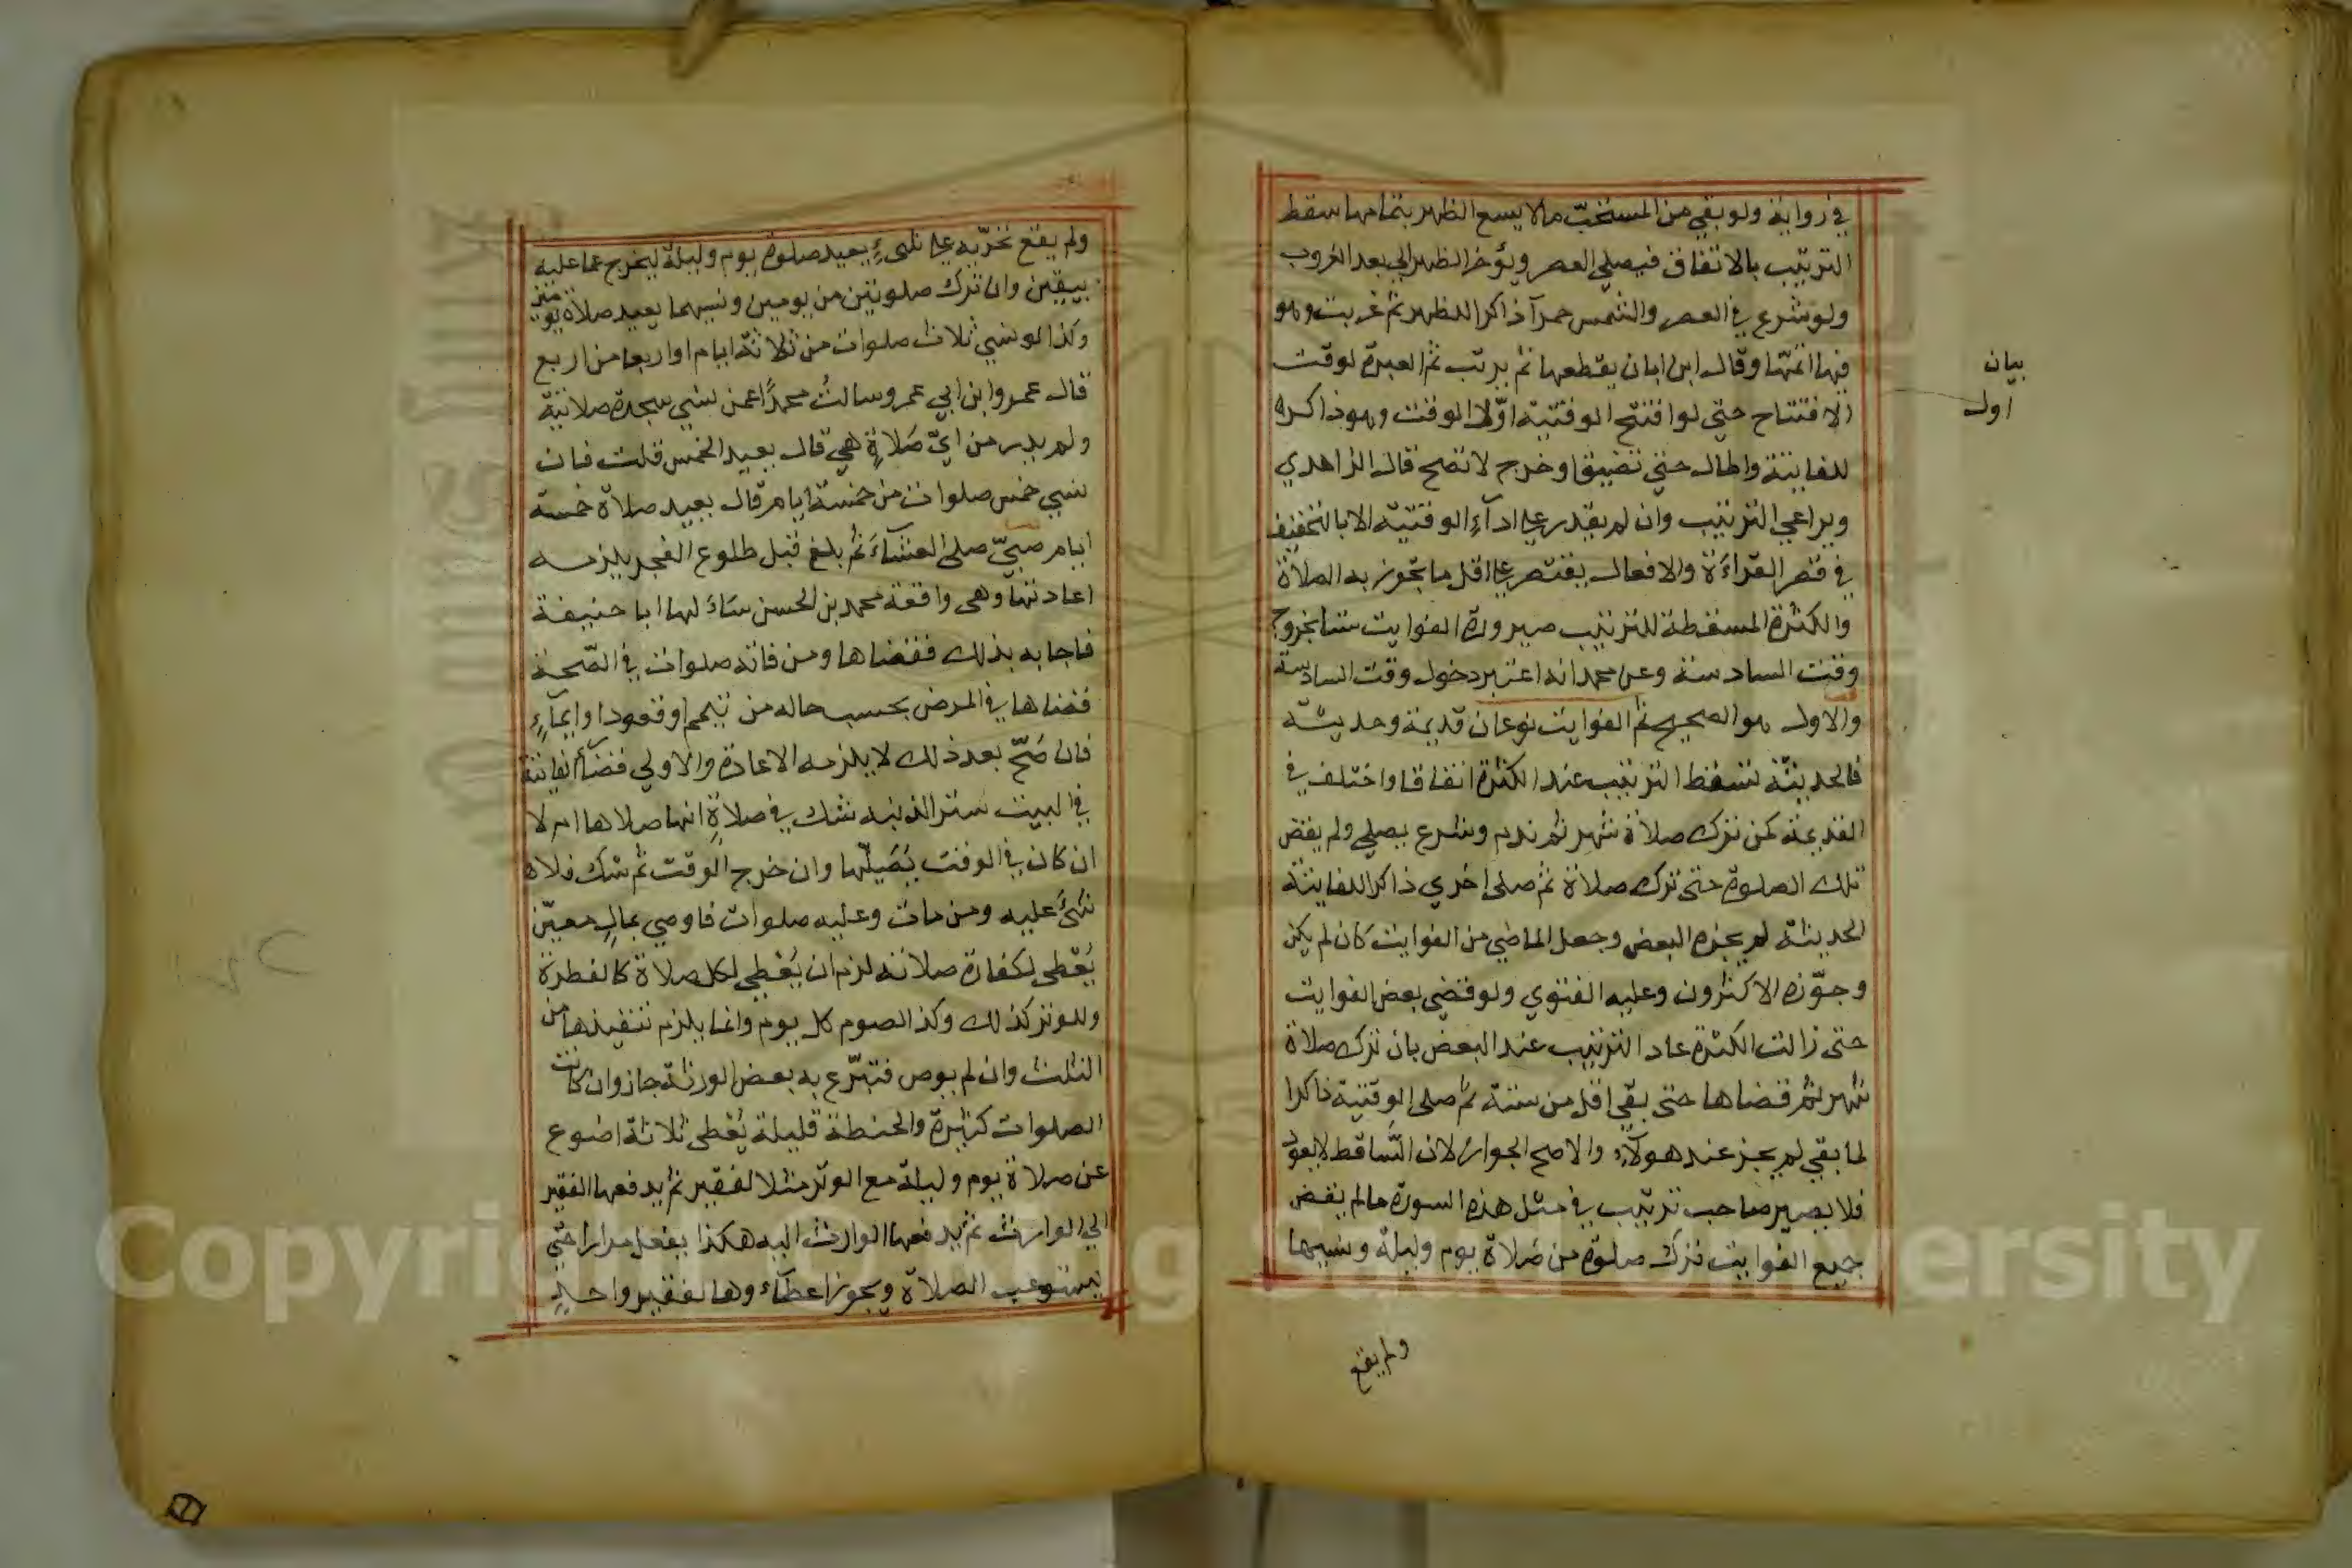 في رواية ولو بقي من المستحبّ مالا يسع الظهر بتمامها سقط
الترتيب بالاتفاق فيصلي العصر ويؤخر الظهر الي بعد الغروب
ولو شرع في العصر والشمس حمرآ ذاكرا للظهر ثم غربت وهو
فيها اتمّها وقال ابن ابان يقطعها ثم يرتب ثم العبرة لوقت
الافتتاح حتي لو افتتح الوقتية اوّل الوقت وهو ذاكره
للفايتة واطال حتي تضيق وخرج لا تصح قال الزاهدي
ويراعي الترتيب وان لم يقدر علي ادآء الوقتية الا بالتخفيف
في قصر القرآءة والافعال يقتصر علي اقل ما تجوز به الصلاة
والكثرة المسقطة للترتيب صيرورة الفوايت ستا بخروج
وقت السادسة وعن محمد انه اعتبر دخول وقت السادسة
والاول هو الصحيح ثم الفوايت نوعان قديمة وحديثة
فالحديثة تسقط الترتيب عند الكثرة اتفاقا واختلف في
القديمة كمن ترك صلاة شهر ثم ندم وشرع يصلي ولم يقض
تلك الصلوة حتى ترك صلاة ثم صلى اخري ذاكرا للفايتة
الحديثة لم يجزه البعض وجعل الماضي من الفوايت كان لم يكن
وجوّزه الاكثرون وعليه الفتوي ولو قضي بعض الفوايت
حتى زالت الكثرة عاد الترتيب عند البعض بان ترك صلاة
شهر ثم قضاها حتى بقي اقل من ستة ثم صلى الوقتية ذاكرا
لما بقي لم يجز عند هولآء والاصح الجواز لان السّاقط لا يعود
فلا يصير صاحب ترتيب في مثل هذه السورة ما لم يقض
جميع الفوايت ترك صلوة من صلاة يوم وليلة ونسيها
بيان
اول
ولم يقع
ولم يقع تحرّيه علي شيءٍ يعيد صلوة يوم وليلة ليخرج عما عليه
بيقين وان ترك صلوتين من يومين ونسيهما يعيد صلاة يومين
وكذا لو نسي ثلاث صلوات من ثلاثة ايام او اربعا من اربع
قال عمرو ابن ابي عمرو سالتُ محمدًا عمن نسي سجدة صلاتية
ولم يدر من ايّ صَلاةٍ هي قال يعيد الخمس قلت فان
نسي خمس صلوات من خمسة ايام قال يعيد صلاة خمسة
ايام صبيّ صلى العشآءَ ثم بلغ قبل طلوع الفجر يلزمه
اعادتها وهى واقعة محمد بن الحسن سَاَلَ لها ابا حنيفة
فاجابه بذلك فقضاها ومن فاته صلوات في الصّحة
قضاها في المرض بحسب حاله من تيمم او قعودا وايمآءٍ
فان صَحّ بعد ذلك لا يلزمه الاعادة والاولي قضآء الفايتة
في البيت سترا لذنبه شك في صلاةٍ انها صلاها ام لا
ان كان في الوقت يُصَلّيها وان خرج الوقت ثم شك فلا
شئَ عليه ومن مات وعليه صلوات فاوصي بمالٍ معيّن
يُعْطى لكفارة صلاته لزم ان يُعْطي لكل صلاة كالفطرة
وللوتر كذلك وكذا الصوم كل يوم وانما يلزم تنفيذها من
الثلث وان لم يوص فتبرّع به بعض الورثة جاز وان كانت
الصلوات كثيرة والحنطة قليلة يُعْطى ثلاثة اصْوع
عن صلاة يوم وليلة مع الوتر مثلا لفقير ثم يدفعها الفقير
الي الوارث ثم يدفعها الوارث اليه هكذا يفعل مرارا حتّي
يستوعب الصلاة ويجوز اعطآء وها لفقير واحدٍ